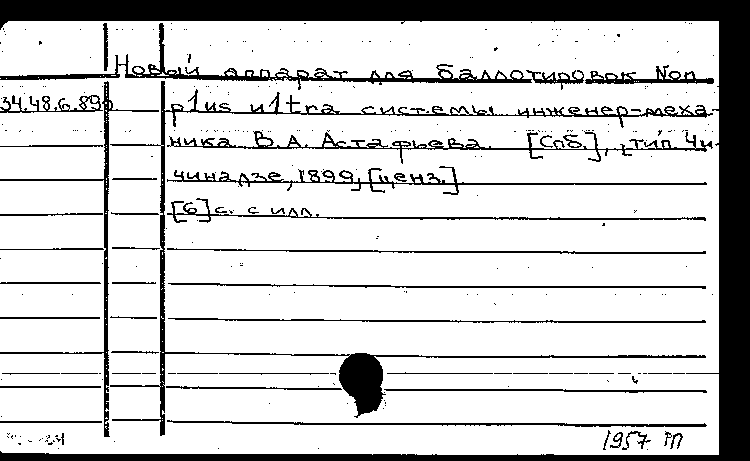 Новый аппарат для баллотировок Non
34.48.6.890 plus ultra системы инженер-меха-
ника В.А. Астафьева. [Спб.], тип. Чи-
чинадзе, 1899, [ценз.]
[6] с. с илл.
1957 тп